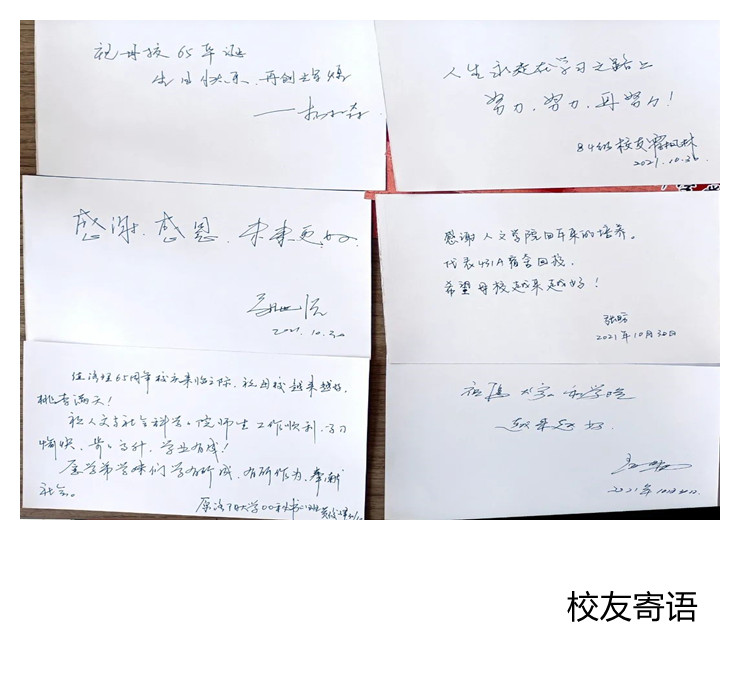 祝母校65华诞
生日快乐、再创辉煌
人生永远在学习之路上
努力、努力、再努力!
84级校友
2021.10.30
感谢、感恩、未来更好
2021.10.30
感谢人文学院四年来的培养。
代表431A宿舍回校。
希望母校越来越好!
2021年10月30日
值 65周年校庆来临之际,祝母校越来越好,
桃李满天!
祝人文与社会科学学院师生工作顺利、学习
愉快、步步高升、学业有成!
愿学弟学妹们学有所成、有所作为、奉献
社会。
祝福 大学 学院
越来越好.
2021年10月30日
校友寄语